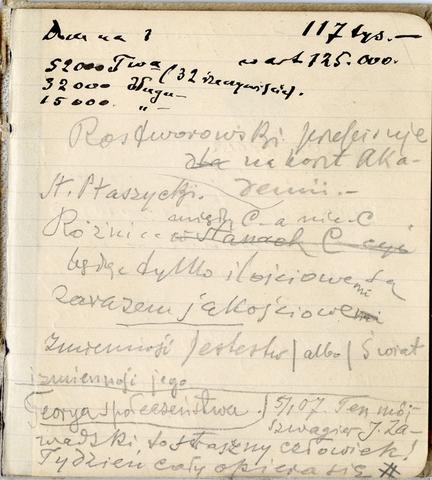 Dom na 1 117 tys.—
52000 Twa (32 rzeczywiście). wart 125.000.
32000 długu
15000. "—
Rostworowski preferuje
dla na koszt Aka-
St. Ptaszycki. demii.—
Różnice między C a nie-C
w stanach C
będąc tylko ilościowemi są
zarazem jakościowemi
zmienność Jestestw / albo / Świat
i zmienność jego
Teorya społeczeństwa. / 5/I 07. Ten mój
szwagier J. Za-
wadzki to straszny człowiek!
Tydzień cały opiera się #